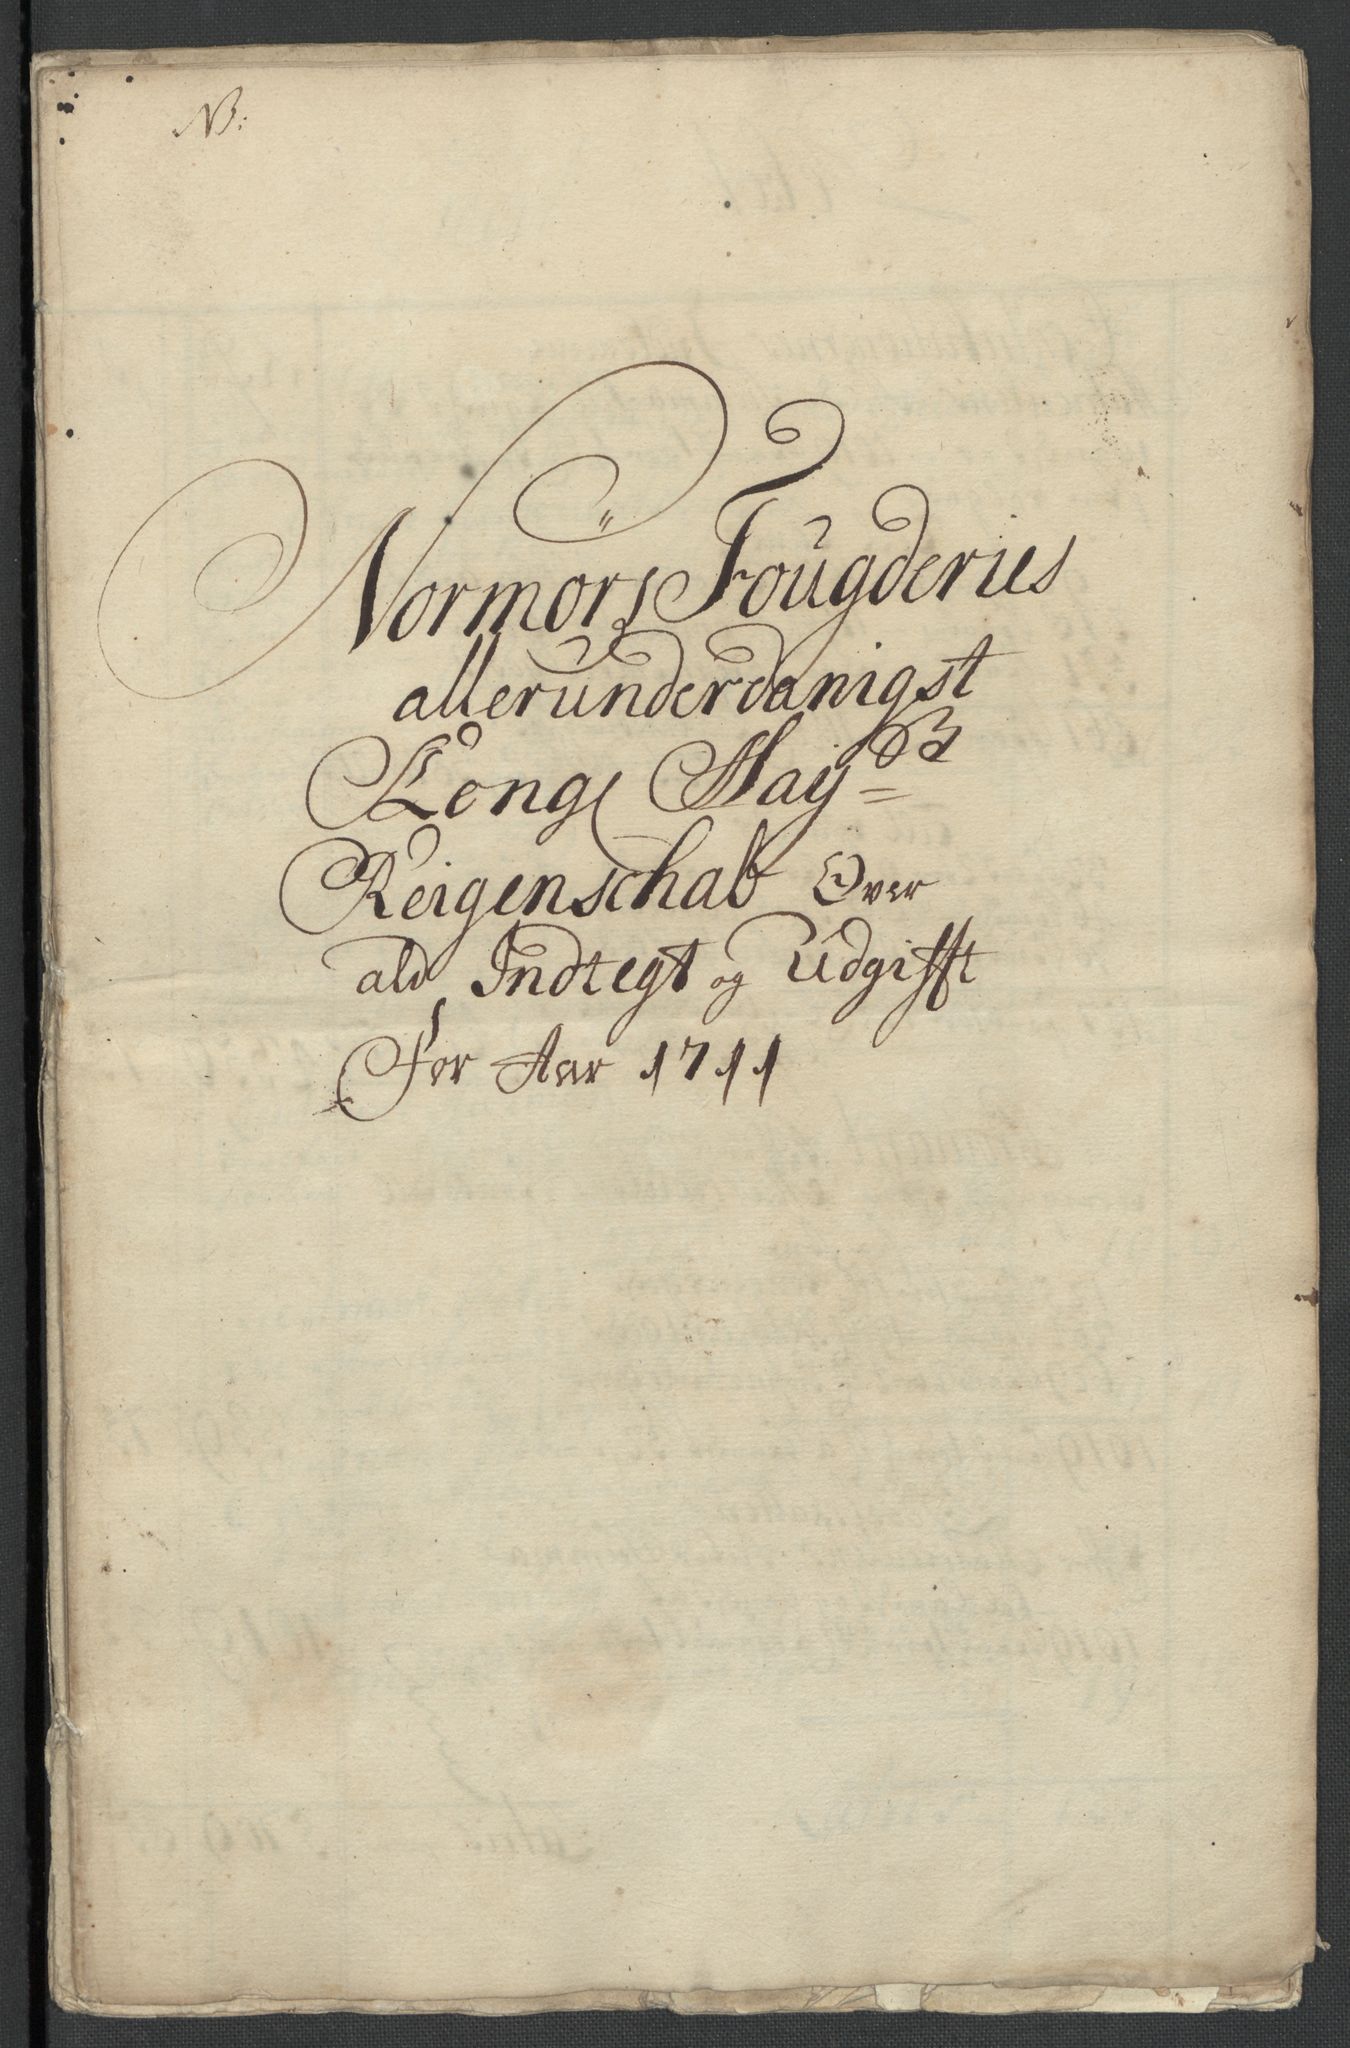 NB:
Normørs Fougderies
allerunderdanigst
Kongl May:ts
Reigenschab Over
ald Indtegt og Udgifft
For Aar 1711